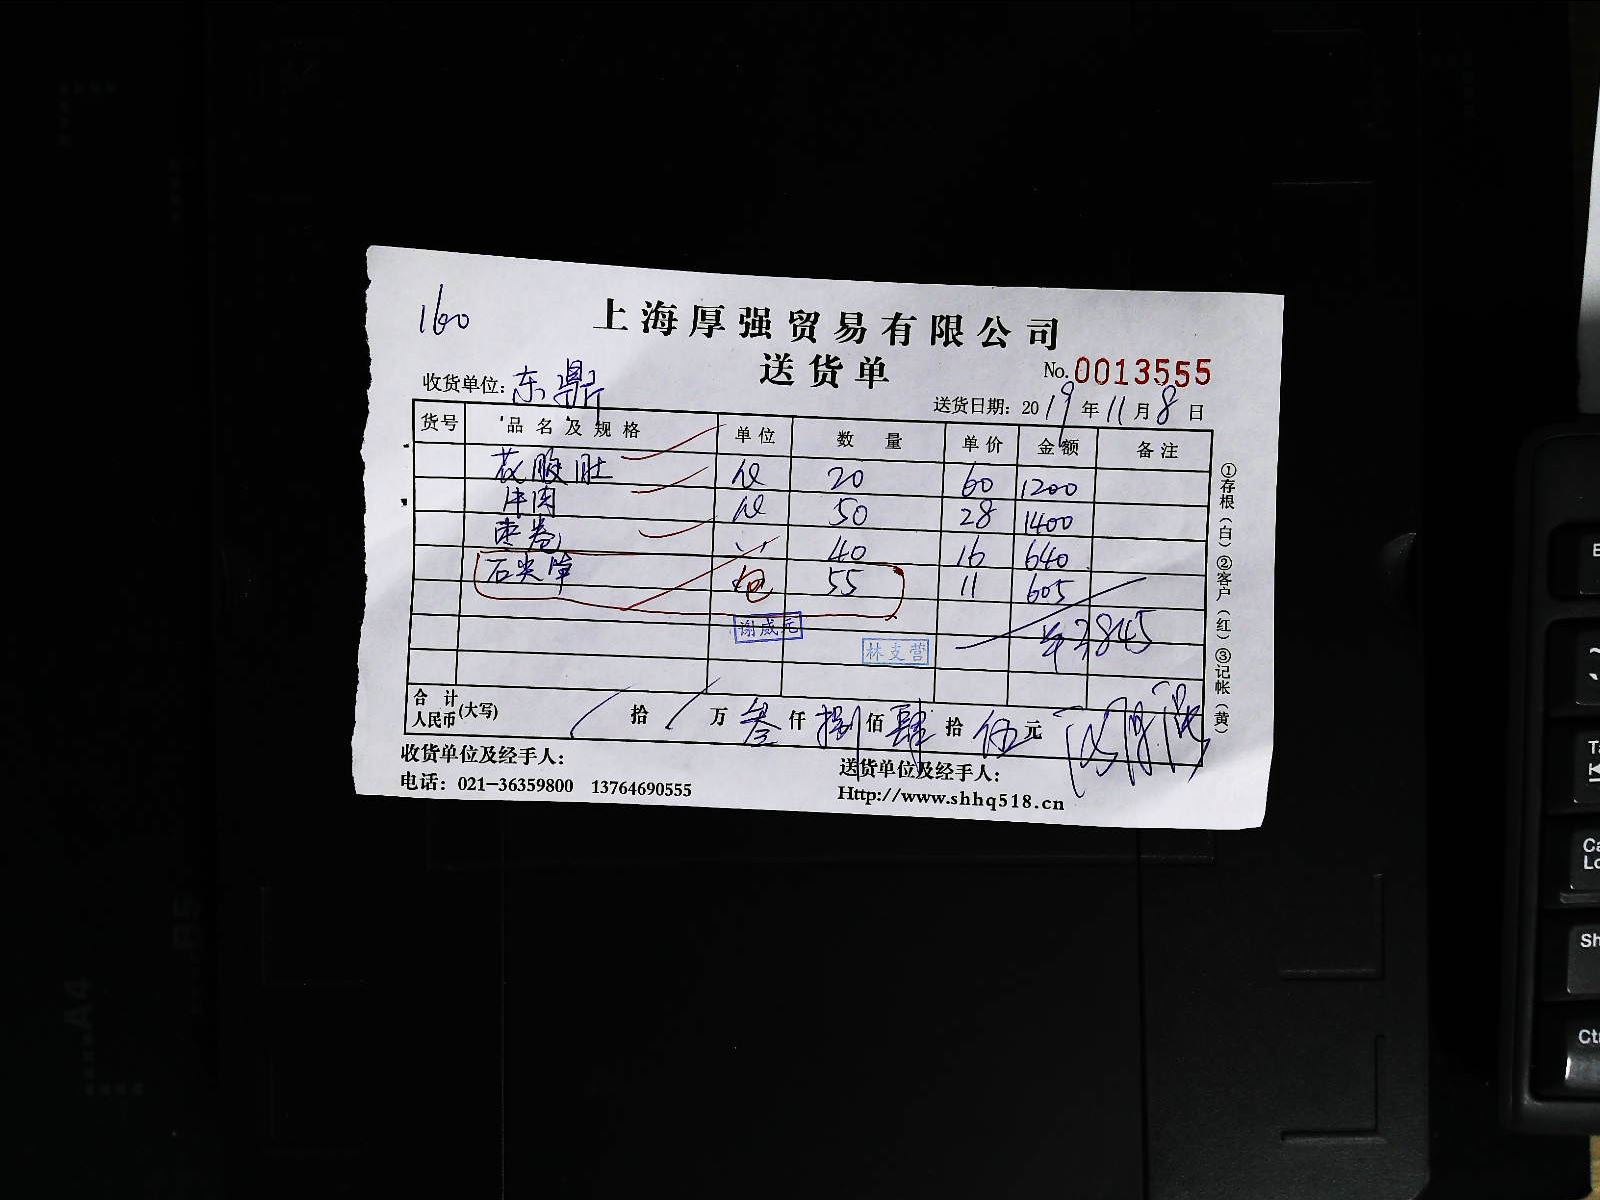 160
上海厚强贸易有限公司
送货单
No.0013555
收货单位：东鼎
送货日期：2019年11月8日
货号 品名及规格 单位 数量 单价 金额 备注
花胶肚 20 60 1200
牛肉 50 28 1400
枣卷 40 16 640
包 55 11 605
¥3845
谢成元
林支营
合计人民币(大写) / 拾 / 万 叁 仟 捌 佰 肆 拾 伍 元
收货单位及经手人：
送货单位及经手人：
电话：021-36359800 13764690555
Http://www.shhq518.cn
①存根（白）②客户（红）③记帐（黄）
A4
B5